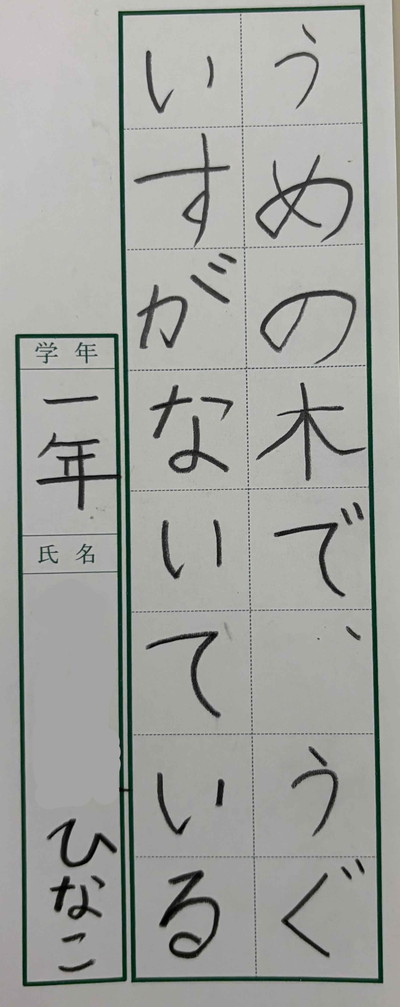 うめの木で、うぐ
いすがないている
学年
一年
氏名
ひなこ